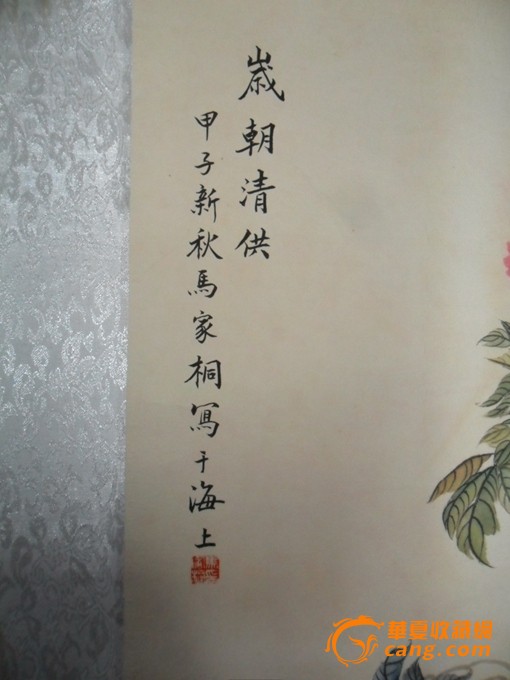 歲朝清供
甲子新秋馬家桐寫于海上
華夏收藏網
cang.com